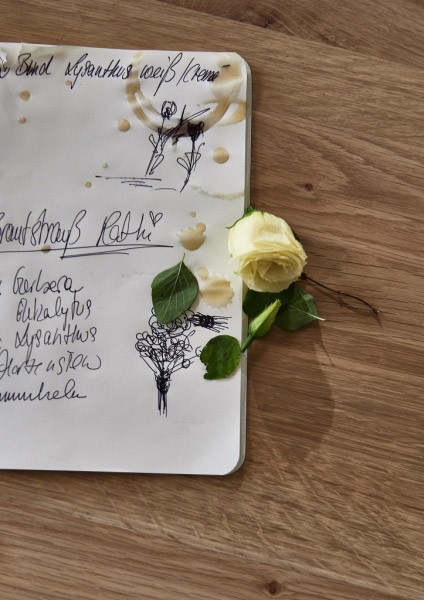 Bund Lysanthus weiß/creme
Brautstrauß Kathi
Gerbera
Eukalyptus
Lysanthus